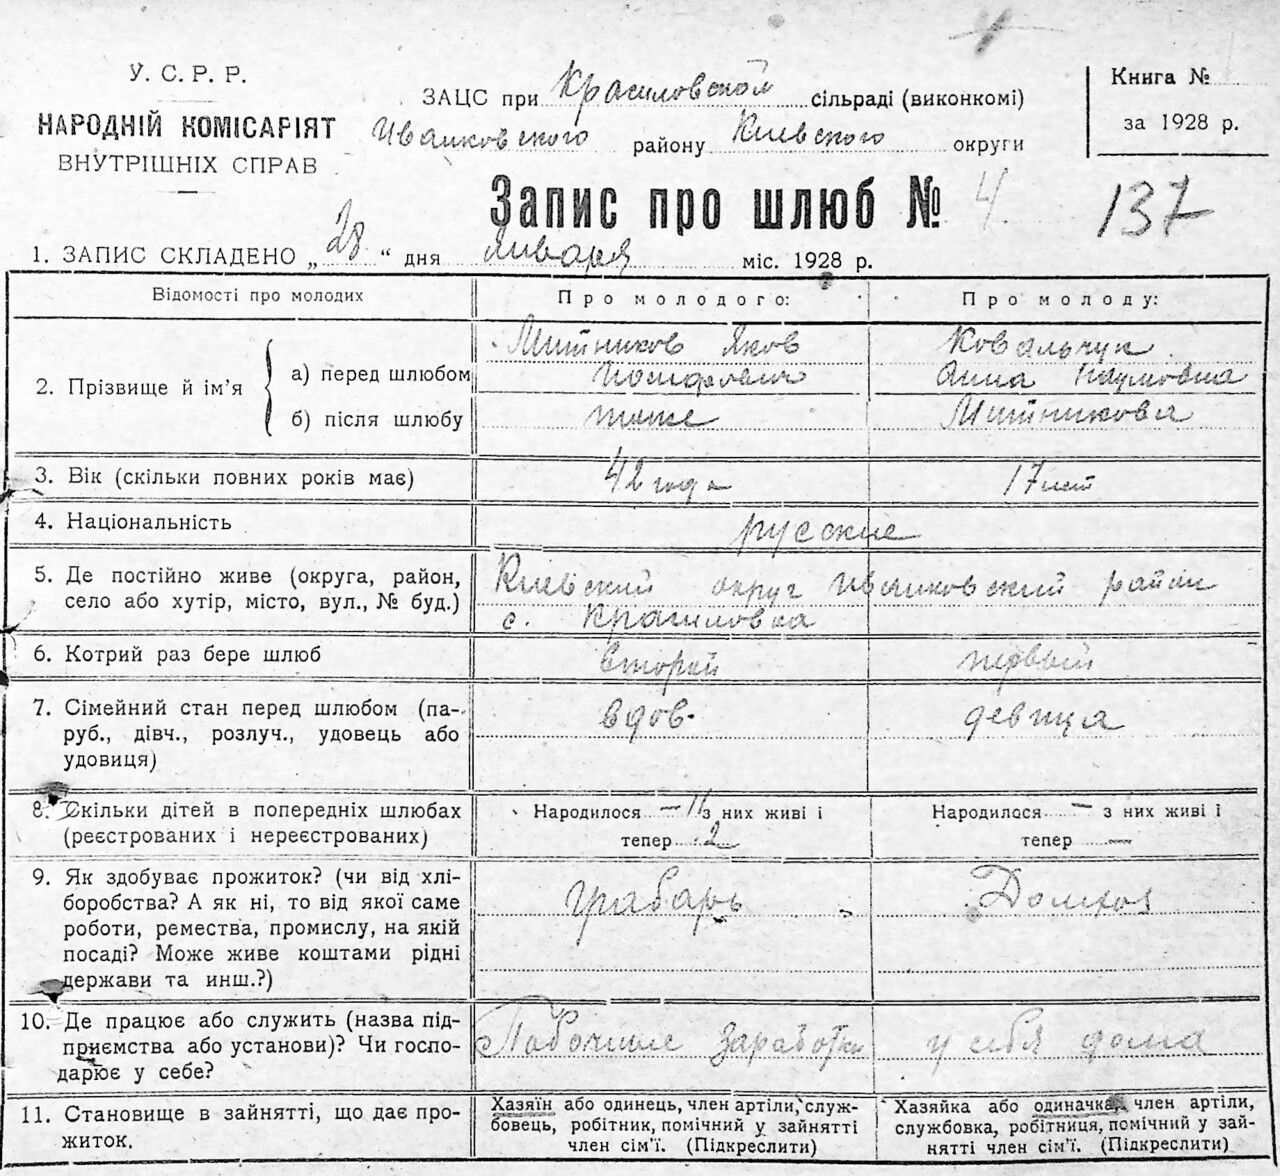 У. С. Р. Р.
НАРОДНІЙ КОМІСАРІЯТ
ВНУТРІШНІХ СПРАВ
ЗАЦС при Красиловской сільраді (виконкомі)
Иванковского району Киевского округи
Книга №
за 1928 р.
Запис про шлюб № 4
137
1. ЗАПИС СКЛАДЕНО „28“ дня января міс. 1928 р.
Відомості про молодих
Про молодого:
Про молоду:
2. Прізвище й ім’я
а) перед шлюбом
Митников Яков
Иосифович
Ковальчук
Анна Наумовна
б) після шлюбу
тоже
Митникова
3. Вік (скільки повних років має)
42 года
17 лет
4. Національність
русские
5. Де постійно живе (округа, район,
село або хутір, місто, вул., № буд.)
Киевский округ Иванковский район
с. Красиловка
6. Котрий раз бере шлюб
второй
первый
7. Сімейний стан перед шлюбом (па-
руб., дівч., розлуч., удовець або
удовиця)
вдов.
девица
8. Скільки дітей в попередніх шлюбах
(реєстрованих і нереєстрованих)
Народилося — 11 з них живі і
тепер 2
Народилося — з них живі і
тепер —
9. Як здобуває прожиток? (чи від хлі-
боробства? А як ні, то від якої саме
роботи, ремества, промислу, на якій
посаді? Може живе коштами рідні
держави та инш.?)
грабарь
Домхоз
10. Де працює або служить (назва під-
приємства або установи)? Чи госпо-
дарює у себе?
Побочные заработки
у себя дома
11. Становище в зайнятті, що дає про-
житок.
Хазяїн або одинець, член артіли, служ-
бовець, робітник, помічний у зайнятті
член сім’ї. (Підкреслити)
Хазяйка або одиначка, член артіли,
службовка, робітниця, помічний у зай-
нятті член сім’ї. (Підкреслити)